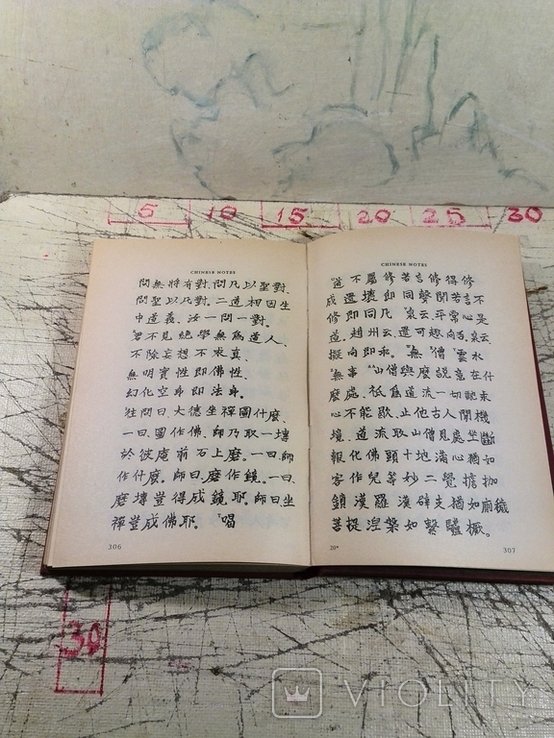 5 10 15 20 25 30
CHINESE NOTES
問無將有對、問凡以聖對、
問聖以凡對、二道相因生
中道義、汝一問一對。
君不見絕學無爲道人、
不除妄想不求真、
無明實性即佛性、
幻化空身即法身。
往問曰大德坐禪圖什麼、
一曰、圖作佛、師乃取一塼
於彼庵前石上磨。一曰師
作什麼。師曰、磨作鏡。一曰、
磨塼豈得成鏡耶。師曰坐
禪豈成佛耶。 喝
306
CHINESE NOTES
道不屬修若言修得修
成還壞即同聲聞若言不
修即同凡 泉云平常心是
道。趙州云還可趣向否泉云
擬向即乖。 無 僧 雲水
無事 山僧與麼說意在什
麼處、祇爲道流一切馳求
心不能歇、止他古人閒機
境、道流取山僧見處坐斷
報化佛頭十地滿心猶如
客作兒等妙二覺擔枷
鎖漢羅漢辟支猶如廁穢
菩提涅槃如繫驢橛。
20*
307
30
VIOLITY